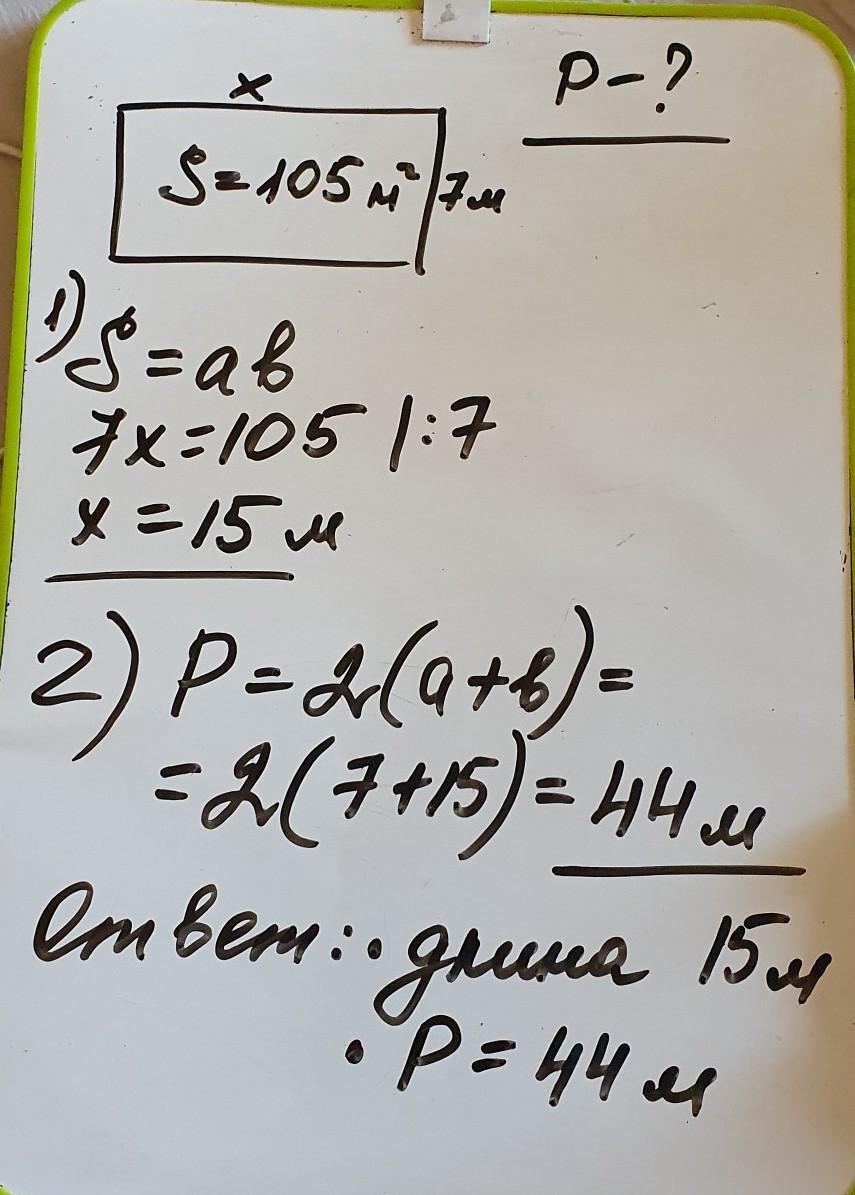 x
P-?
S=105 м²
7м
1) S=ab
7x=105 |:7
x=15 м
2) P=2(a+b)=
=2(7+15)=44 м
Ответ: • длина 15 м
• P=44 м